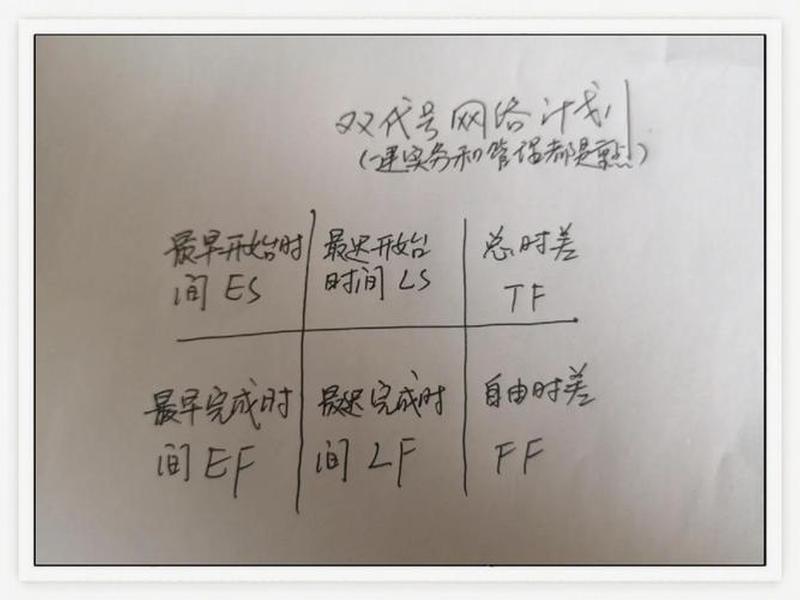 双代号网络计划
(建实务和管理都是重点)
最早开始时
间 ES
最迟开始
时间 LS
总时差
TF
最早完成时
间 EF
最迟完成时
间 LF
自由时差
FF